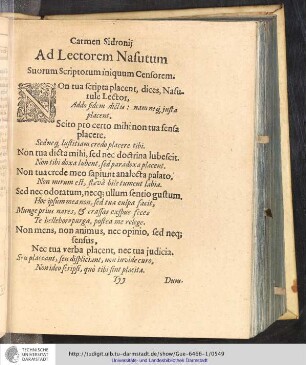 Carmen Sidronij
Ad Lectorem Nasutum
Suorum Scriptorum iniquum Censorem.
NOn tua scripta placent, dices, Nasu-
tule Lector,
Addo fidem dictis: nam neq; justa
placent.
Scito pro certo mihi non tua sensa
placere.
Sed neq; Justitiam credo placere tibi.
Non tua dicta mihi, sed nec doctrina lubescit.
Non tibi doxa lubent, sed paradoxa placent.
Non tua crede meo sapiunt analecta palato,
Non mirum est, flavâ bile tument labia.
Sed nec odoratum, necq; ullum sentio gustum,
Hoc ipsum mea non, sed tua culpa facit,
Munge prius nares, & crassas exspue feces
Te helleboro purga, postea me relege.
Non mens, non animus, nec opinio, sed neq;
sensus,
Nec tua verba placent, nec tua judicia.
Seu placeant, seu displiciant, non invide curo,
Non ideo scripsi, quò tibi sint placita.
Yyy
Dum-
TECHNISCHE
UNIVERSITÄT
DARMSTADT
http://tudigit.ulb.tu-darmstadt.de/show/Gue-6466-1/0549
Universitäts- und Landesbibliothek Darmstadt